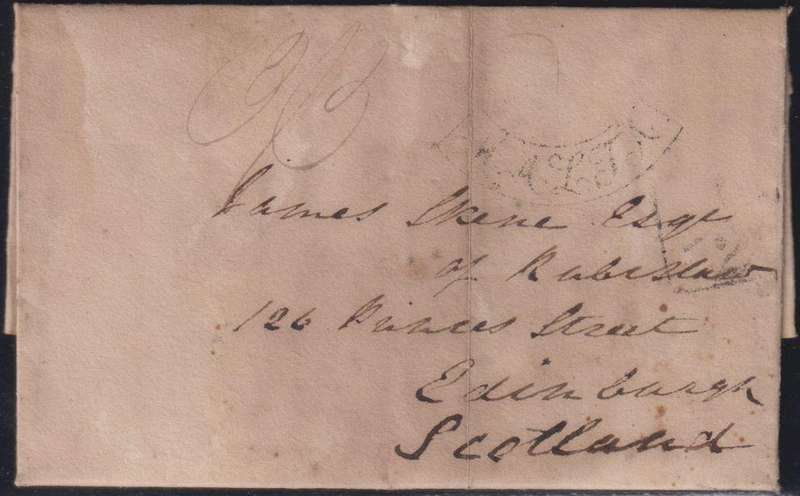 James Skene Esqr
of Rubislaw
126 Princes Street
Edinburgh
Scotland